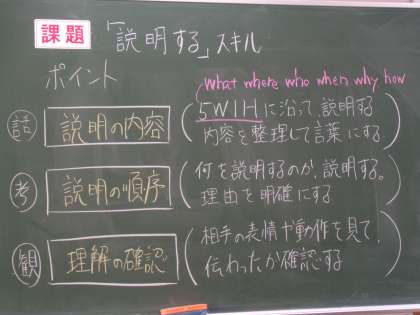 課題 「説明する」スキル
ポイント
what where who when why how
話 説明の内容 (5W1Hに沿って、説明する
内容を整理して言葉にする)
考 説明の順序 (何を説明するのか、説明する。
理由を明確にする)
観 理解の確認 (相手の表情や動作を見て、
伝わったか確認する)